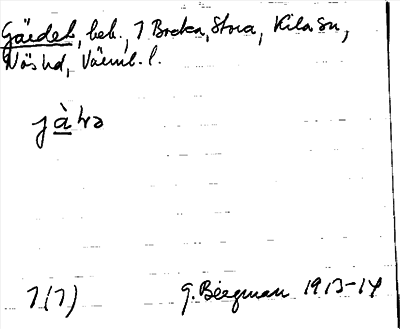 Gärdet, beb. 7 Backa, Stora, Kila sn,
Näs hd, Värml. l.
jà̱ɽə
7(7) G. Bergman 1913-14